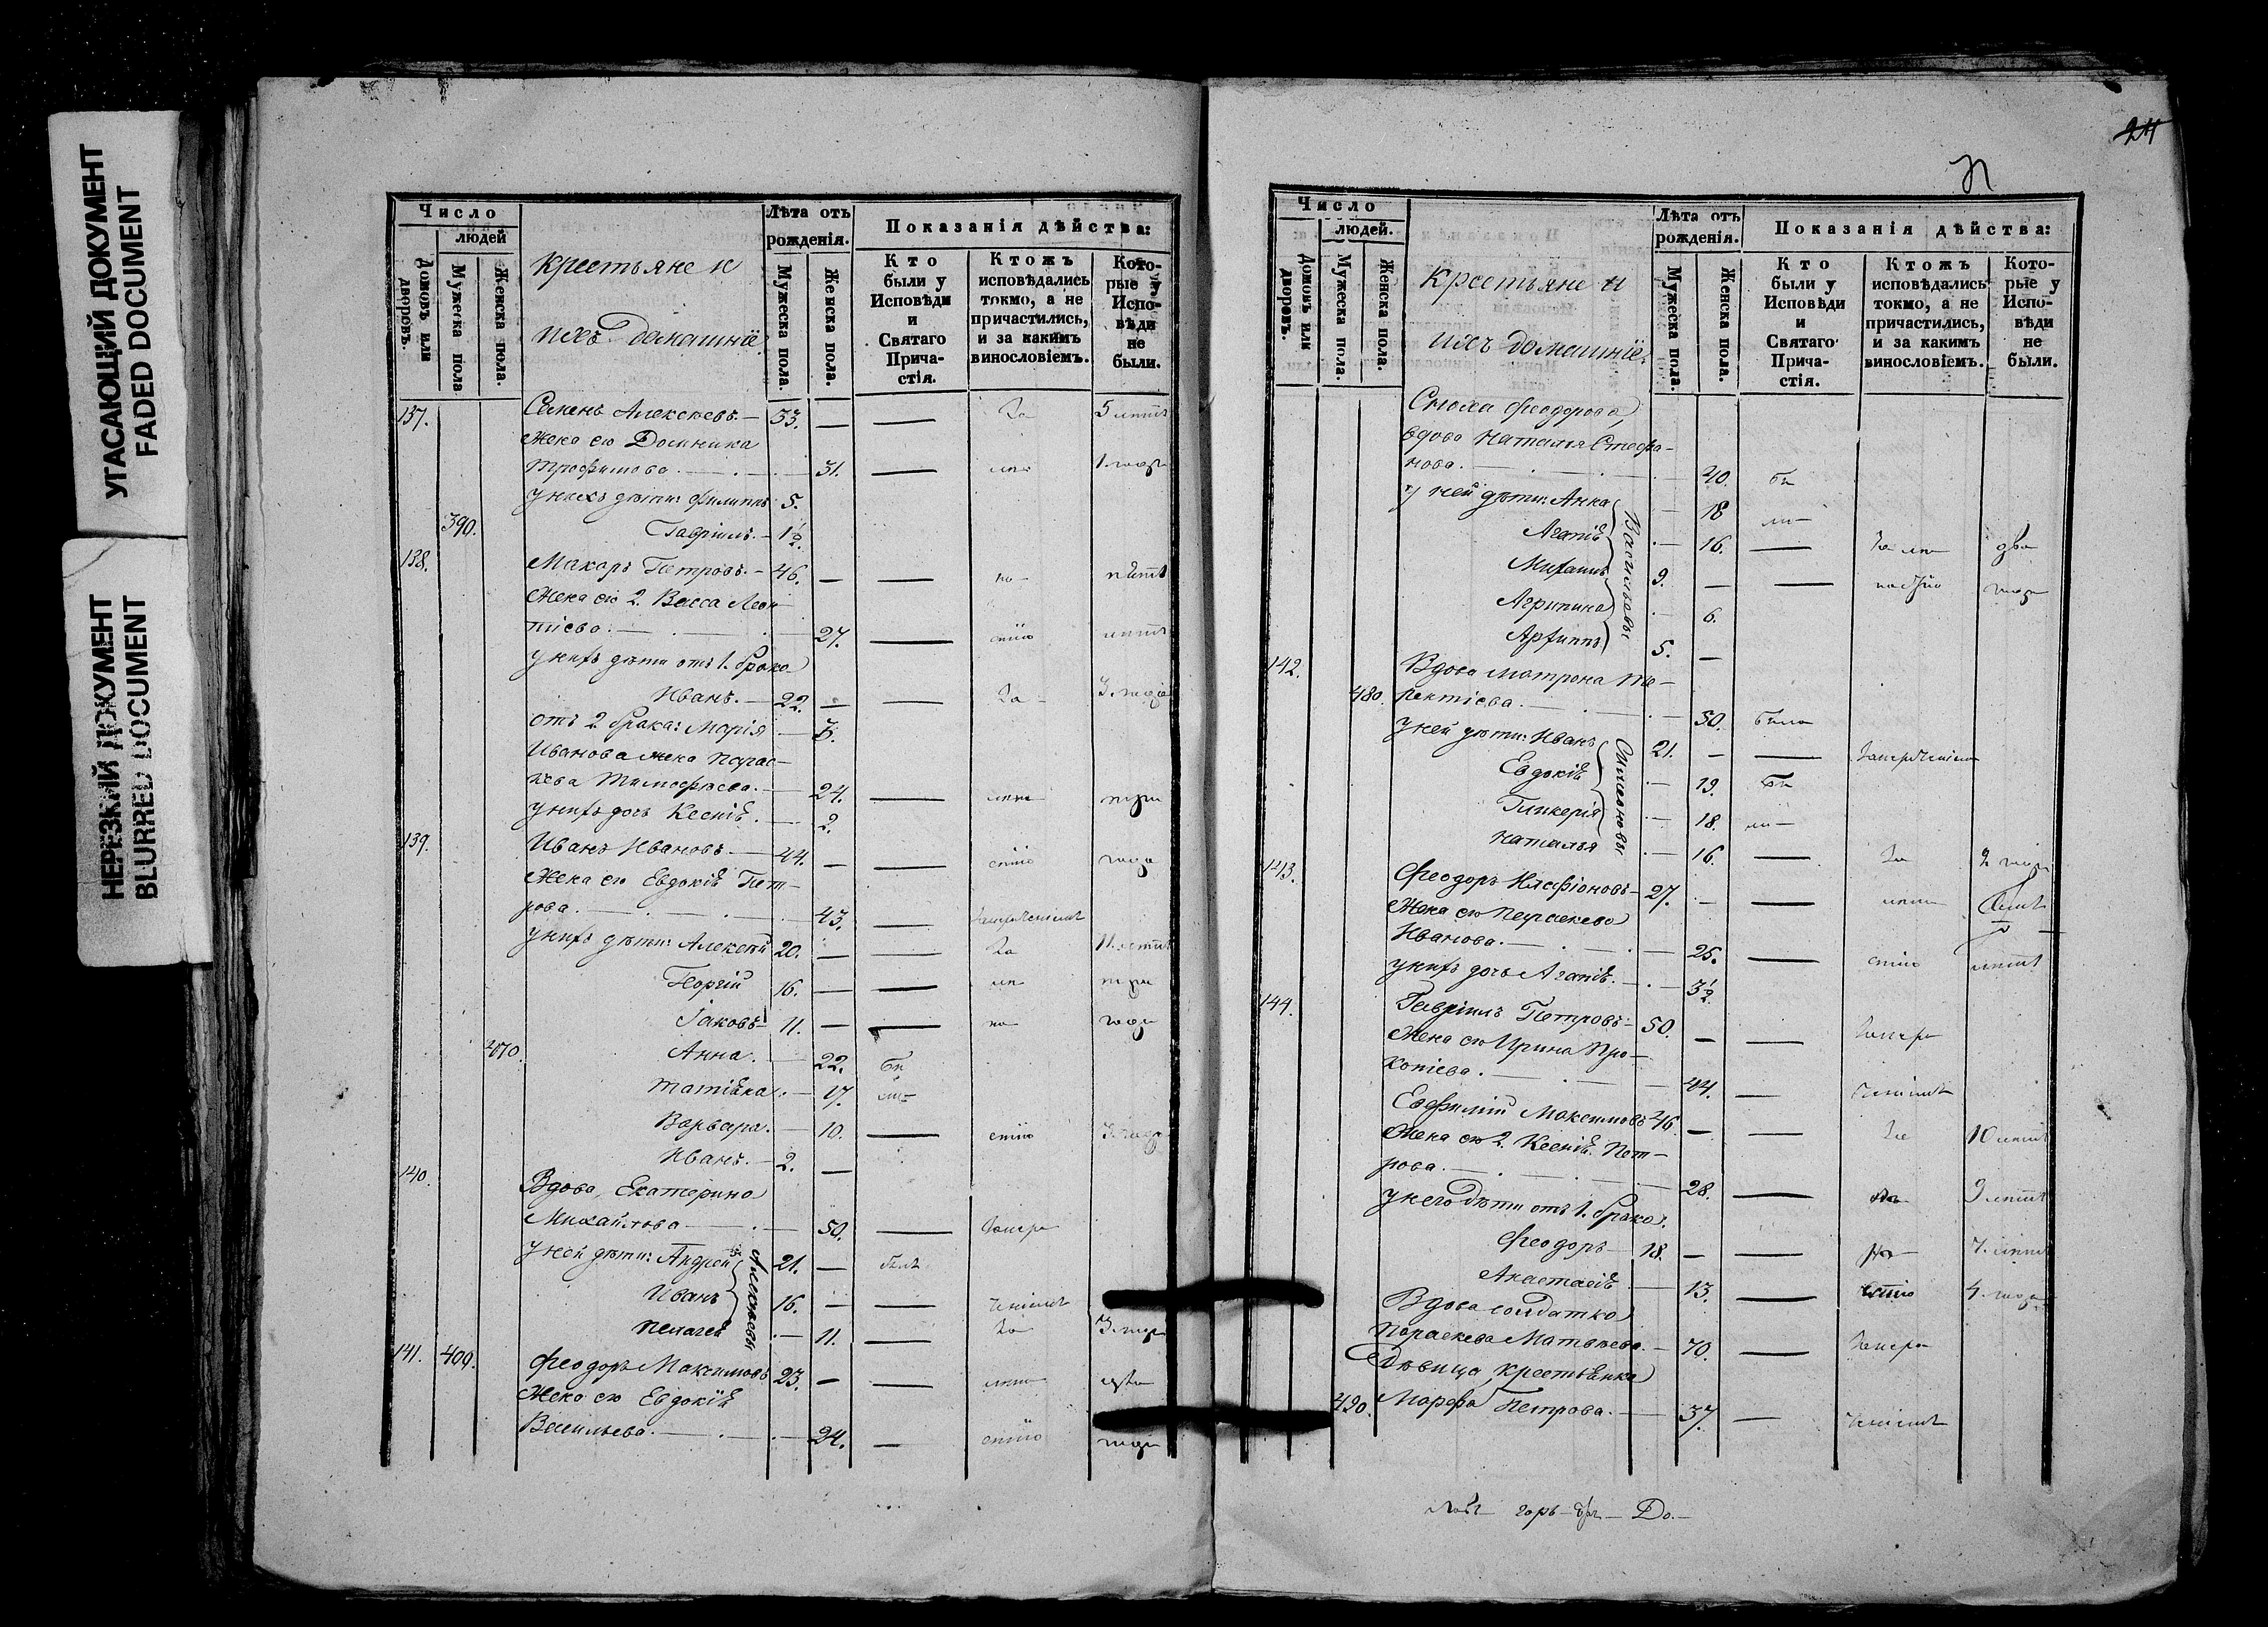 УГАСАЮЩИЙ ДОКУМЕНТ
FADED DOCUMENT
НЕРЕЗКИЙ ДОКУМЕНТ
BLURRED DOCUMENT
Число
людей
Домовъ или дворовъ.
Мужеска пола
Женска пола.
Крестьяне и
ихъ домашніе.
Лѣта отъ рожденія.
Мужеска пола.
Женска пола.
Показанія дѣйства:
Кто были у Исповѣди и Святаго Прича-стія.
Ктожъ исповѣдались токмо, а не причастились, и за какимъ винословіемъ.
Кото-рые у Испо-вѣди не были.
137. Семенъ Алексѣевъ. 33. За 5 лѣтъ
Жена его Домника
Трофимова. 31. 1. года
У нихъ дѣти: Филиппъ 5.
390. Гавріилъ. 1½
138. Макаръ Петровъ. 46. но пять
Жена его 2. Васса Леон-
тіева. 27. стію лѣтъ
У нихъ дѣти отъ 1. брака
Иванъ. 22. За 3. года
отъ 2 брака: Марія 3.
Иванова жена Парас-
кева Тимофѣева. 24. три
У нихъ дочь Ксенія. 2.
139. Иванъ Ивановъ. 44. стію года
Жена его Евдокія Пет-
рова. 43.
У нихъ дѣти: Алексѣй 20. За 11. лѣтъ
Георгій 16. три
Іаковъ 11. но года
470. Анна. 22. Бы
Татіяна. 17. ли
Варвара. 10. стію 3. года
Иванъ. 2.
140. Вдова Екатерина
Михайлова 50.
У ней дѣти: Андрей 21. былъ
Иванъ 16.
Пелагея 11. За 3. года
Алексѣевы
141. 400. Феодоръ Максимовъ 23. два
Жена его Евдокія
Васильева. 24. стію года
24
Число
людей.
Домовъ или дворовъ.
Мужеска пола.
Женска пола.
Крестьяне и
ихъ домашніе.
Лѣта отъ рожденія.
Мужеска пола.
Женска пола.
Показанія дѣйства:
Кто были у Исповѣди и Святаго Прича-стія.
Ктожъ исповѣдались токмо, а не причастились, и за какимъ винословіемъ.
Кото-рые у Испо-вѣди не были.
Сноха Феодорова,
вдова Наталья Стефа-
нова. 40. бы
У ней дѣти: Анна 18 ли
Агапія 16. два
Михаилъ 9. года
Агрипина 6.
Архиппъ 5.
Васильевы
142. Вдова Матрона Те-
480. рентіева. 50. была
У ней дѣти: Иванъ 21.
Евдокія 19. бы
Гликерія 18. ли
Наталья 16. За 2 года
Симеоновы
143. Феодоръ Иларіоновъ 27.
Жена его Параскева
Иванова. 25. стію лѣтъ
У нихъ дочь Агапія. 3½
144. Гавріилъ Петровъ 50.
Жена его Ирина Про-
копіева. 44.
Евфимій Максимовъ 46. За 10 лѣтъ
Жена его 2. Ксенія Пет-
рова. 28. 9 лѣтъ
У него дѣти отъ 1. брака.
Феодоръ 18. 7. лѣтъ
Анастасія 13. стію 4. года
Вдова солдатка
Параскева Матвѣева. 70.
Дѣвица крестьянка
490. Марфа Петрова. 37.